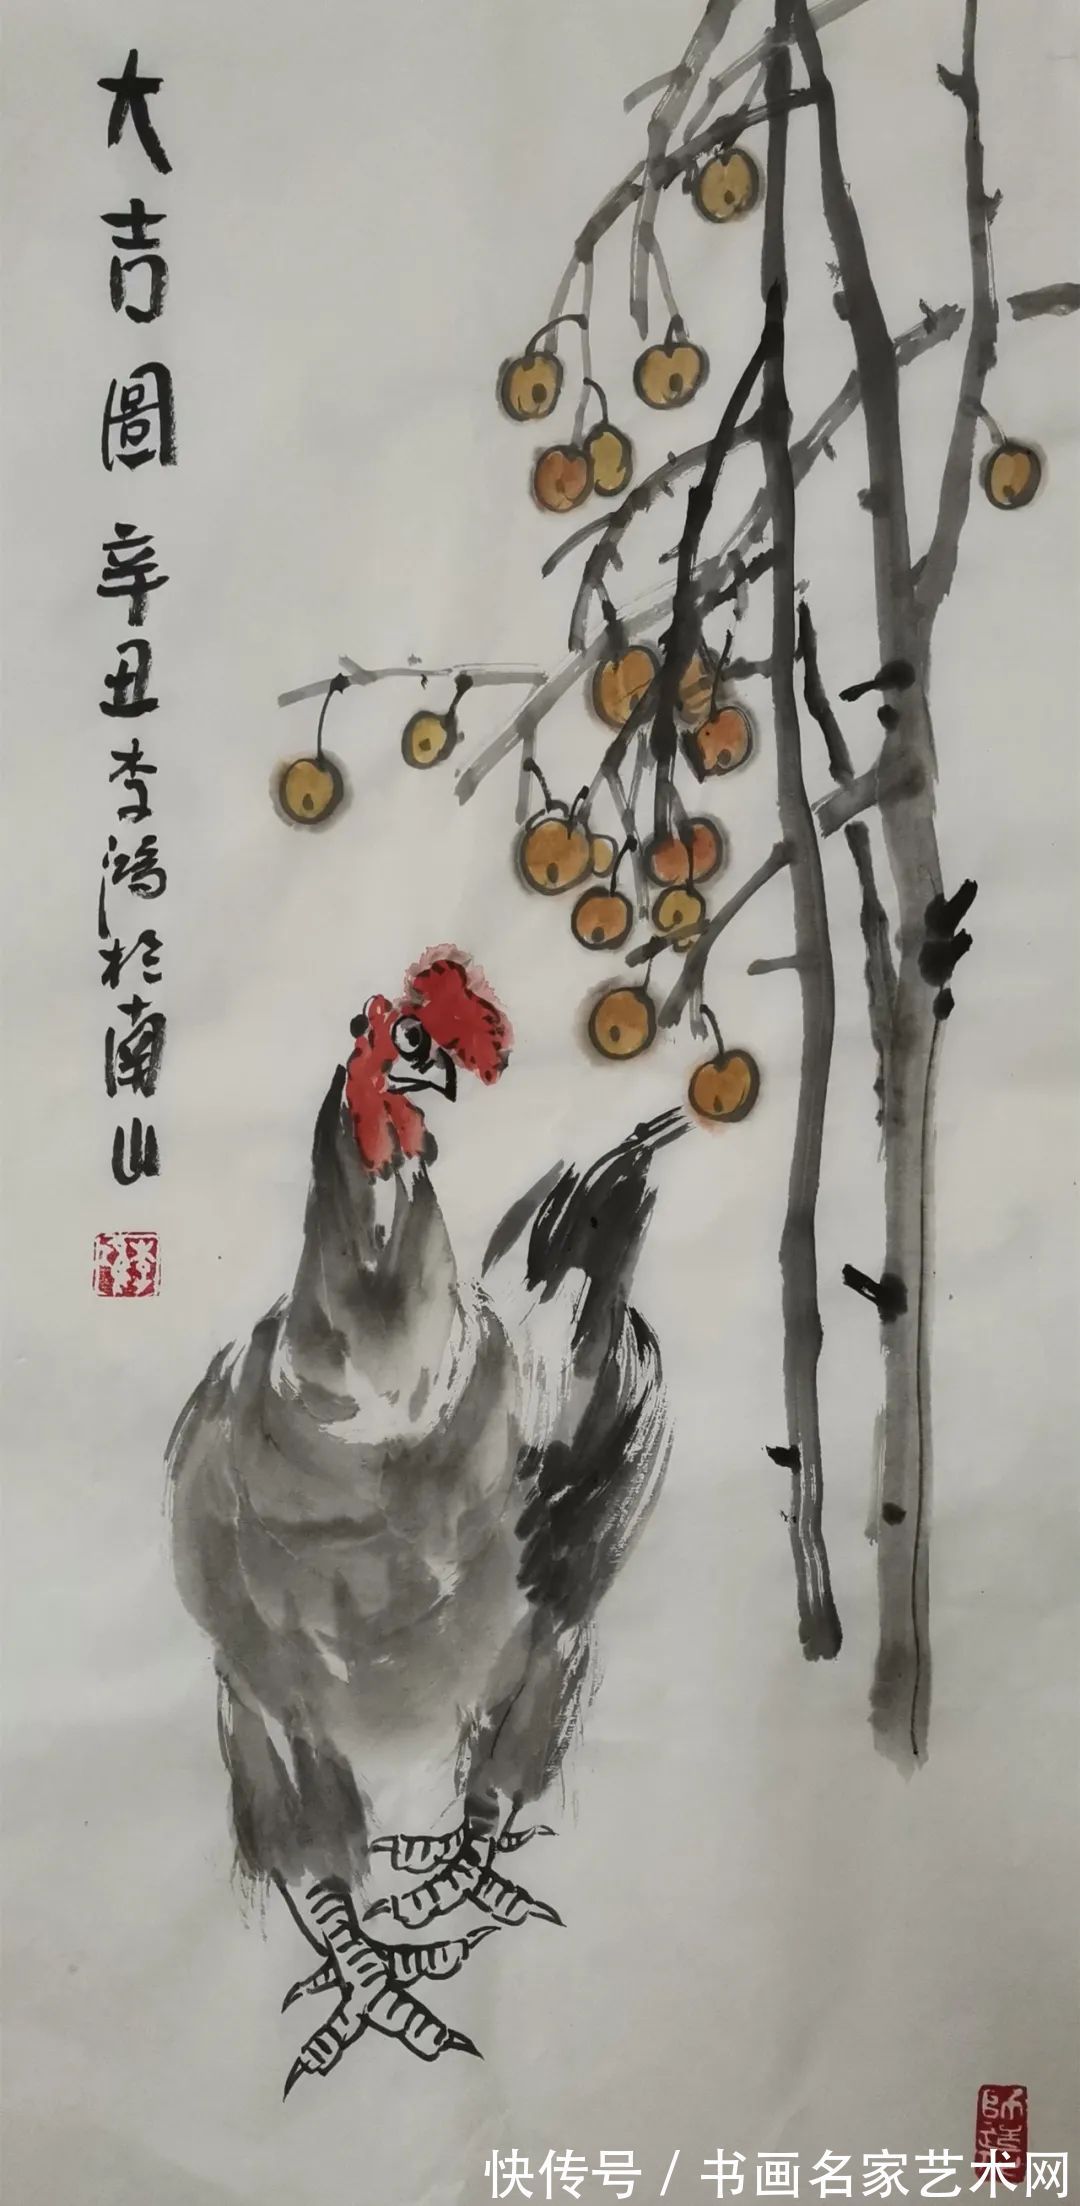 大吉圖 辛丑李鴻於南山
快传号 / 书画名家艺术网